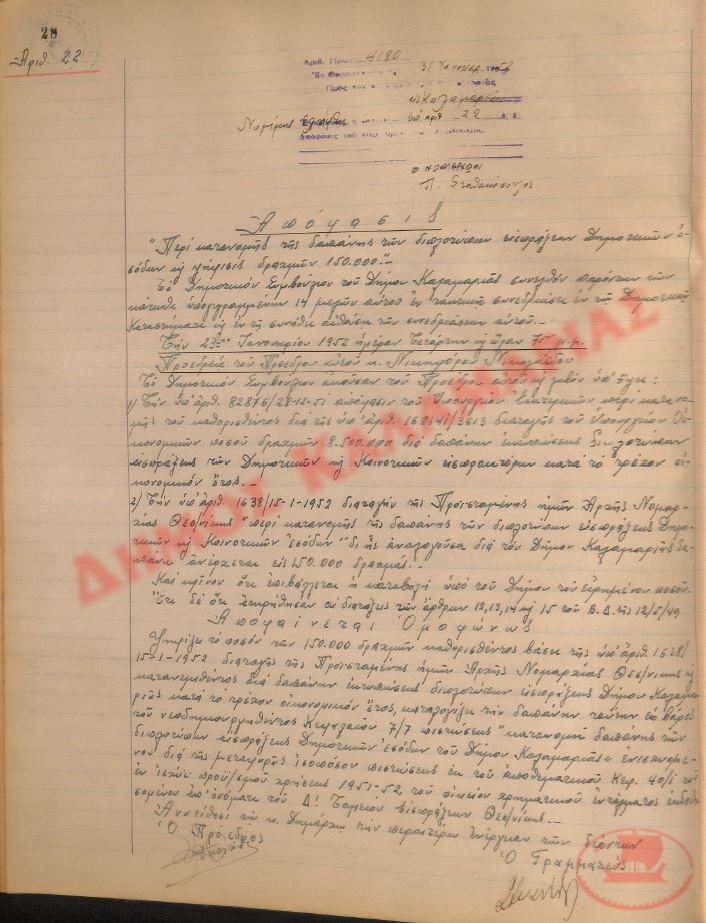 28
Ἀριθ. 22
Ἀριθ. Πρωτ. 4180
31 Ἰανουαρ. 1952
Πρὸς τὸν
Καλαμαριᾶς
ὑπ' ἀριθ. 22
Ο ΝΟΜΑΡΧΩΝ
Π. Σταθακόπουλος
Ἀπόφασις
"Περὶ κατανομῆς τῆς δαπάνης τῶν διπλοτύπων εἰσπράξεων Δημοτικῶν ἐ-
σόδων κ ψήφισις δραχμῶν 150.000."-
Τὸ Δημοτικὸν Συμβούλιον τοῦ Δήμου Καλαμαριᾶς συνελθὸν παρόντων τῶν
κάτωθι ὑπογεγραμμένων 14 μελῶν αὐτοῦ ἐν τακτικῇ συνεδριάσει ἐν τῷ Δημοτικῷ
Καταστήματι κ ἐν τῇ συνήθει αἰθούσῃ τῶν συνεδριάσεων αὐτοῦ.-
Τὴν 23ην Ἰανουαρίου 1952 ἡμέραν Τετάρτην κ ὥραν 7ην μ.μ.
Προεδρείᾳ τοῦ Προέδρου αὐτοῦ κ. Νικηφόρου Νικολαΐδου
Τὸ Δημοτικὸν Συμβούλιον ἀκούσαν τοῦ Προέδρου αὐτοῦ κ λαβὸν ὑπ' ὄψει:
1) Τὴν ὑπ' ἀριθ. 82876/28-12-51 ἀπόφασιν τοῦ Ὑπουργείου Ἐσωτερικῶν περὶ κατανο-
μῆς τοῦ καθορισθέντος διὰ τῆς ὑπ' ἀριθ. 168141/3613 διαταγῆς τοῦ Ὑπουργείου Οἰ-
κονομικῶν ποσοῦ δραχμῶν 8.500.000 διὰ δαπάνην ἐκτυπώσεως διπλοτύπων
εἰσπράξεως τῶν Δημοτικῶν κ Κοινοτικῶν εἰσπρακτόρων κατὰ τὸ τρέχον οἰ-
κονομικὸν ἔτος.-
2) Τὴν ὑπ' ἀριθ. 1638/15-1-1952 διαταγὴν τῆς Προϊσταμένης ἡμῶν Ἀρχῆς Νομαρ-
χίας Θεσ/νίκης "περὶ κατανομῆς τῆς δαπάνης τῶν διπλοτύπων εἰσπράξεως Δημο-
τικῶν κ Κοινοτικῶν ἐσόδων" δι' ἧς ἀναλογοῦσα διὰ τὸν Δῆμον Καλαμαριᾶς δα-
πάνη ἀνέρχεται εἰς 150.000 δραχμάς.-
Καὶ κρῖνον ὅτι ἐπιβάλλεται ἡ καταβολὴ ὑπὸ τοῦ Δήμου τοῦ εἰρημένου ποσοῦ.
Ἔτι δὲ ὅτι ἐτηρήθησαν αἱ διατάξεις τῶν ἄρθρων 12,13,14 κ 15 τοῦ Β.Δ. τῆς 12/5/49
Ἀποφαίνεται Ὁμοφώνως
Ψηφίζει τὸ ποσὸν τῶν 150.000 δραχμῶν καθορισθέντος βάσει τῆς ὑπ' ἀριθ. 1638/
15-1-1952 διαταγῆς τῆς Προϊσταμένης ἡμῶν Ἀρχῆς Νομαρχίας Θεσ/νίκης κ
κατανεμηθέντος διὰ δαπάνην ἐκτυπώσεως διπλοτύπων εἰσπράξεως Δήμου Καλαμα-
ριᾶς κατὰ τὸ τρέχον οἰκονομικὸν ἔτος, καταλογίζει τὴν δαπάνην ταύτην εἰς βάρος
τοῦ νεοδημιουργηθέντος Κεφαλαίου 7/7 πιστώσεως "κατανομὴ δαπάνης τῶν
διπλοτύπων εἰσπράξεως Δημοτικῶν ἐσόδων τοῦ Δήμου Καλαμαριᾶς" ἐνισχυομέ-
νου διὰ τῆς μεταφορᾶς ἰσοπόσου πιστώσεως ἐκ τοῦ ἀποθεματικοῦ Κεφ. 40/1 τοῦ
ἐν ἰσχύϊ προϋ/σμοῦ χρήσεως 1951-52, τοῦ οἰκείου χρηματικοῦ ἐντάλματος ἐκδοθη-
σομένου ἐπ' ὀνόματι τοῦ Δ' Ταμείου Εἰσπράξεων Θεσ/νίκης.-
Ἀνατίθησι τῷ κ. Δημάρχῳ τὴν περαιτέρω ἐνέργειαν τῶν δεόντων
Ὁ Πρόεδρος
Ὁ Γραμματεύς
ΔΗΜΟΣ ΚΑΛΑΜΑΡΙΑΣ